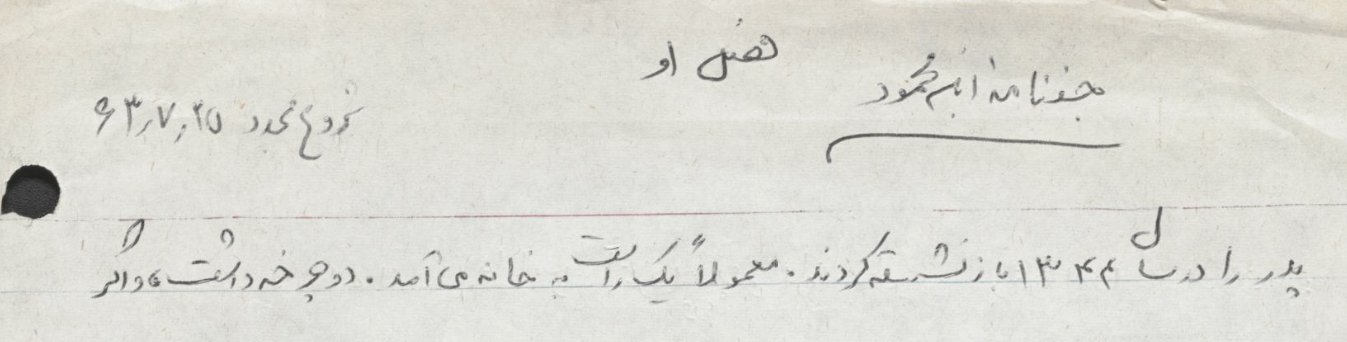 فصل او
جن‌نامه
شروع مجدد ۶۳٫۷٫۲۵
پدر را در سال ۱۳۴۴ بازنشسته کردند. معمولاً یک راست به خانه می‌آمد. دوچرخه داشت، و اگر